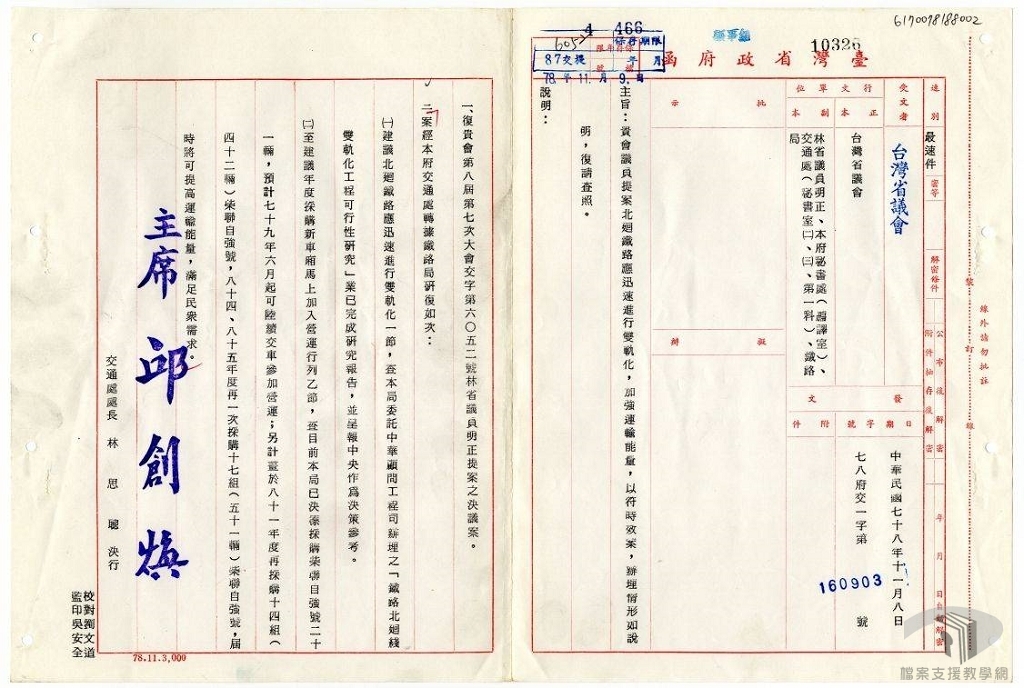 617007818 8002
4 466
10326
臺灣省政府函
保存期限
年
月
87交提
6052
78. 11. 9.
速別
最速件
密等
解密條件
公布後解密
附件抽存後解密
年
月
日自動解密
受文者
台灣省議會
行文單位
正本
台灣省議會
副本
林省議員明正、本府秘書處(編譯室)、
交通處(秘書室㈡、㈢、第一科)、鐵路
局
發文
日期
中華民國七十八年十一月八日
字號
七八府交一字第
160903
號
附件
批示
擬辦
裝
訂
線
線外請勿批註
主旨:貴會議員提案北廻鐵路應迅速進行雙軌化,加強運輸能量,以符時效案,辦理情形如說
明,復請查照。
說明:
一、復貴會第八屆第七次大會交字第六〇五二號林省議員明正提案之決議案。
二、案經本府交通處轉據鐵路局研復如次:
㈠建議北廻鐵路應迅速進行雙軌化一節,查本局委託中華顧問工程司辦理之「鐵路北廻綫
雙軌化工程可行性研究」業已完成研究報告,並呈報中央作為決策參考。
㈡至建議年度採購新車廂馬上加入營運行列乙節,查目前本局已決標採購柴聯自強號二十
一輛,預計七十九年六月起可陸續交車參加營運;另計畫於八十一年度再採購十四組(
四十二輛)柴聯自強號,八十四、八十五年度再一次採購十七組(五十一輛)柴聯自強號,屆
時將可提高運輸能量,滿足民衆需求。
主席 邱創煥
交通處處長 林思聰 決行
校對劉文道
監印吳安全
78.11.3,000
檔案支援教學網